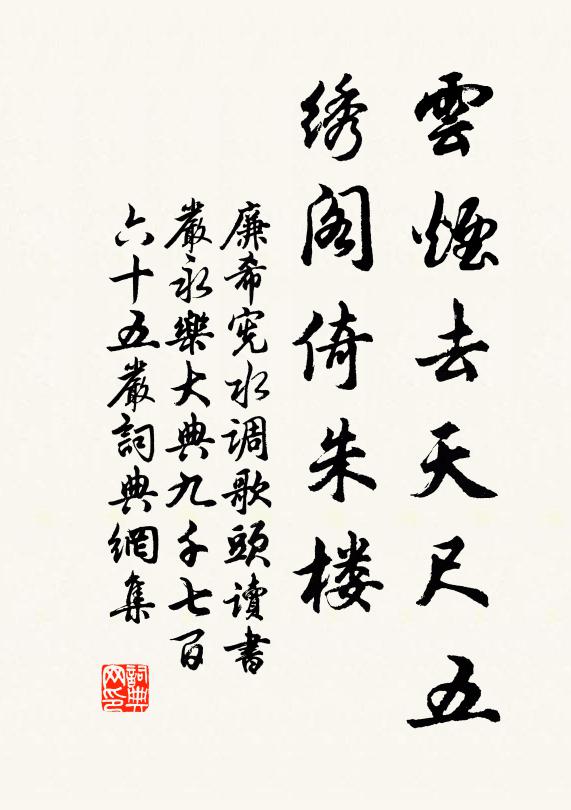 雲煙去天尺五
绣阁倚朱楼
廉希宪水调歌頭讀書
嚴永樂大典九千七百
六十五嚴詞典網集
詞典网印